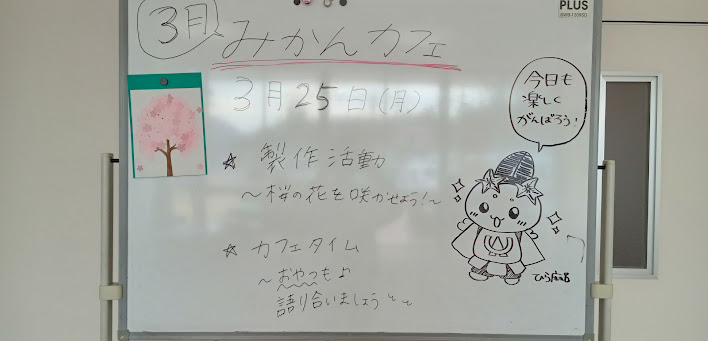 3月
みかんカフェ
3月25日(月)
☆ 製作活動
～桜の花を咲かせよう！～
☆ カフェタイム
～おやつもよ
語り合いましょう～
今日も
楽しく
がんばろう！
PLUS